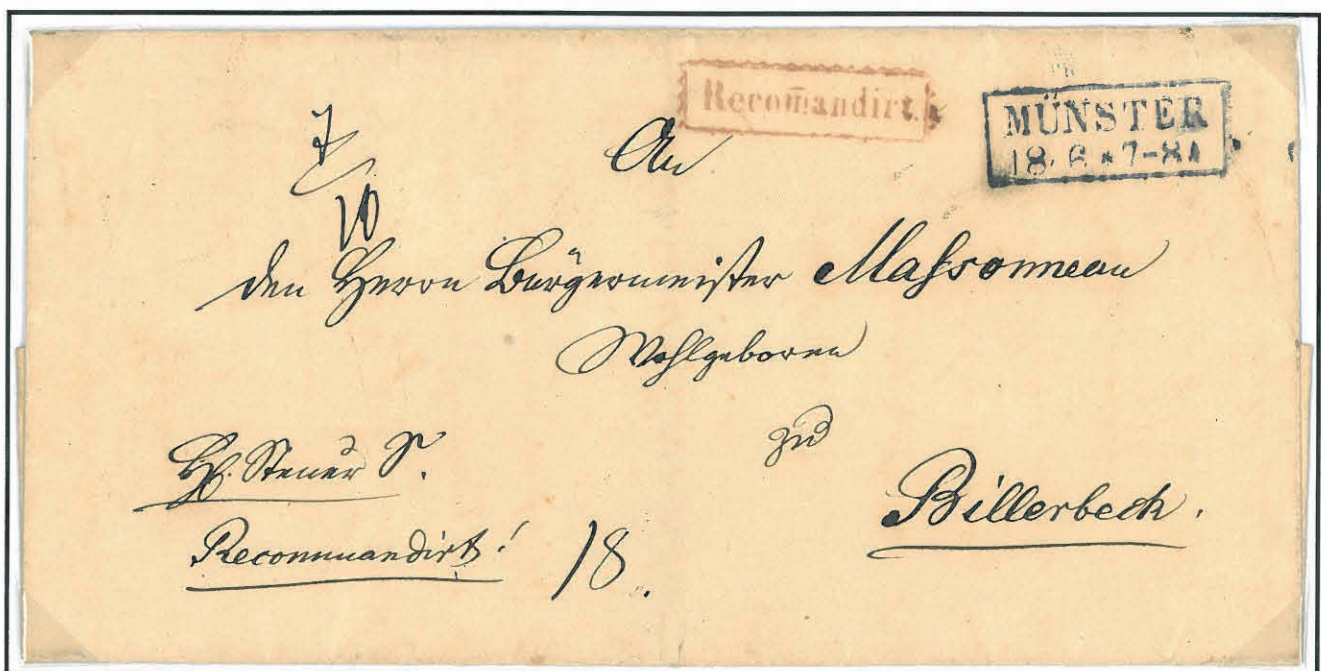 Recom̄andirt.
MÜNSTER
18 6 * 7-8
7
10
An
den Herrn Bürgermeister Massonneau
Wohlgeboren
zu
Billerbeck.
Steuer S.
Recommandirt!
18.